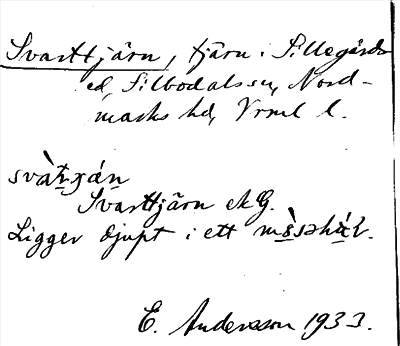 Svarttjärn, tjärn i Sillegårds
ed, Silbodals sn, Nord-
marks hd, Vrml l.
svàt̠x̠án̠
Svarttjärn ek G.
Ligger djupt i ett
E. Andersson 1933.